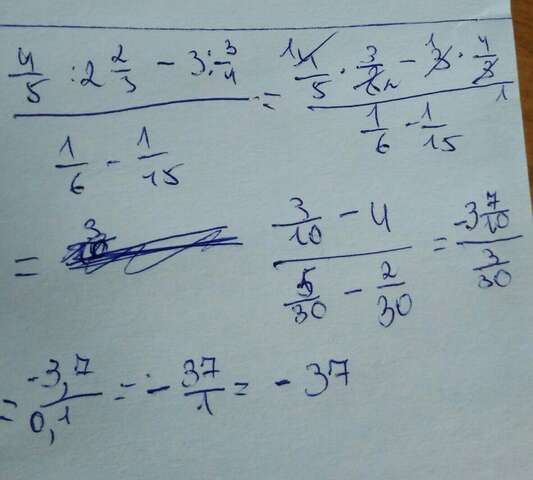 4/5 : 2 2/3 - 3 : 3/4 / 1/6 - 1/15 = 1 4/5 · 3/8 2 - 1 3 · 4/3 1 / 1/6 - 1/15
= 3/10 - 4 / 5/30 - 2/30 = -3 7/10 / 3/30
= -3,7 / 0,1 = - 37/1 = - 37